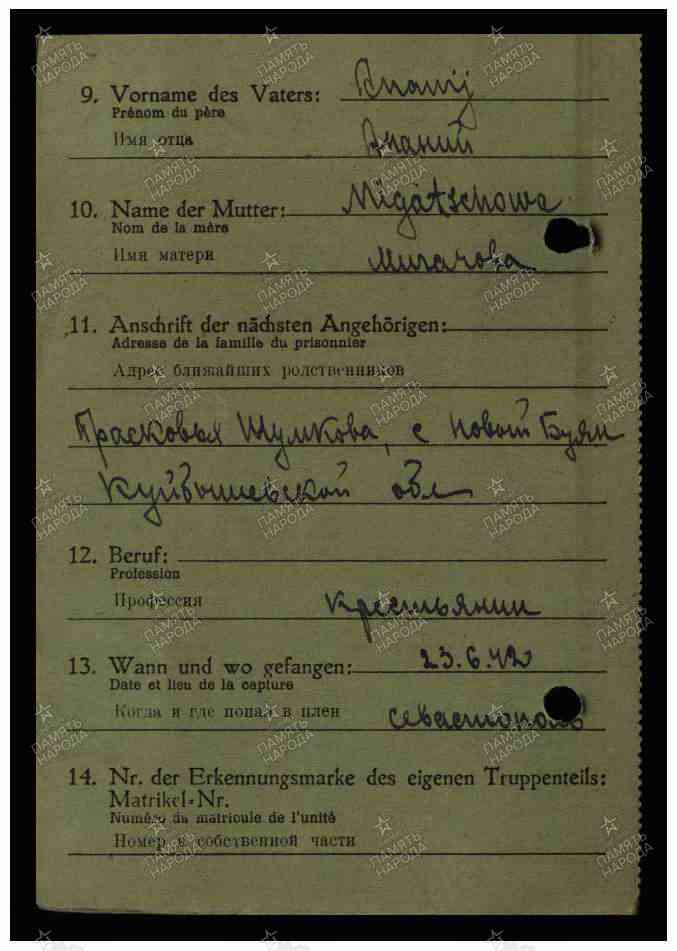 9. Vorname des Vaters: Ananij
Prénom du père
Имя отца Ананий
10. Name der Mutter: Migatschowa
Nom de la mère
Имя матери Мигачова
11. Anschrift der nächsten Angehörigen:
Adresse de la famille du prisonnier
Адрес ближайших родственников
Прасковья Шумкова, с Новый Буян
Куйбышевской обл
12. Beruf:
Profession
Профессия Крестьянин
13. Wann und wo gefangen: 23.6.42
Date et lieu de la capture
Когда и где попал в плен Севастополь
14. Nr. der Erkennungsmarke des eigenen Truppenteils:
Matrikel-Nr.
Numéro du matricule de l'unité
Номер в собственной части
ПАМЯТЬ НАРОДА